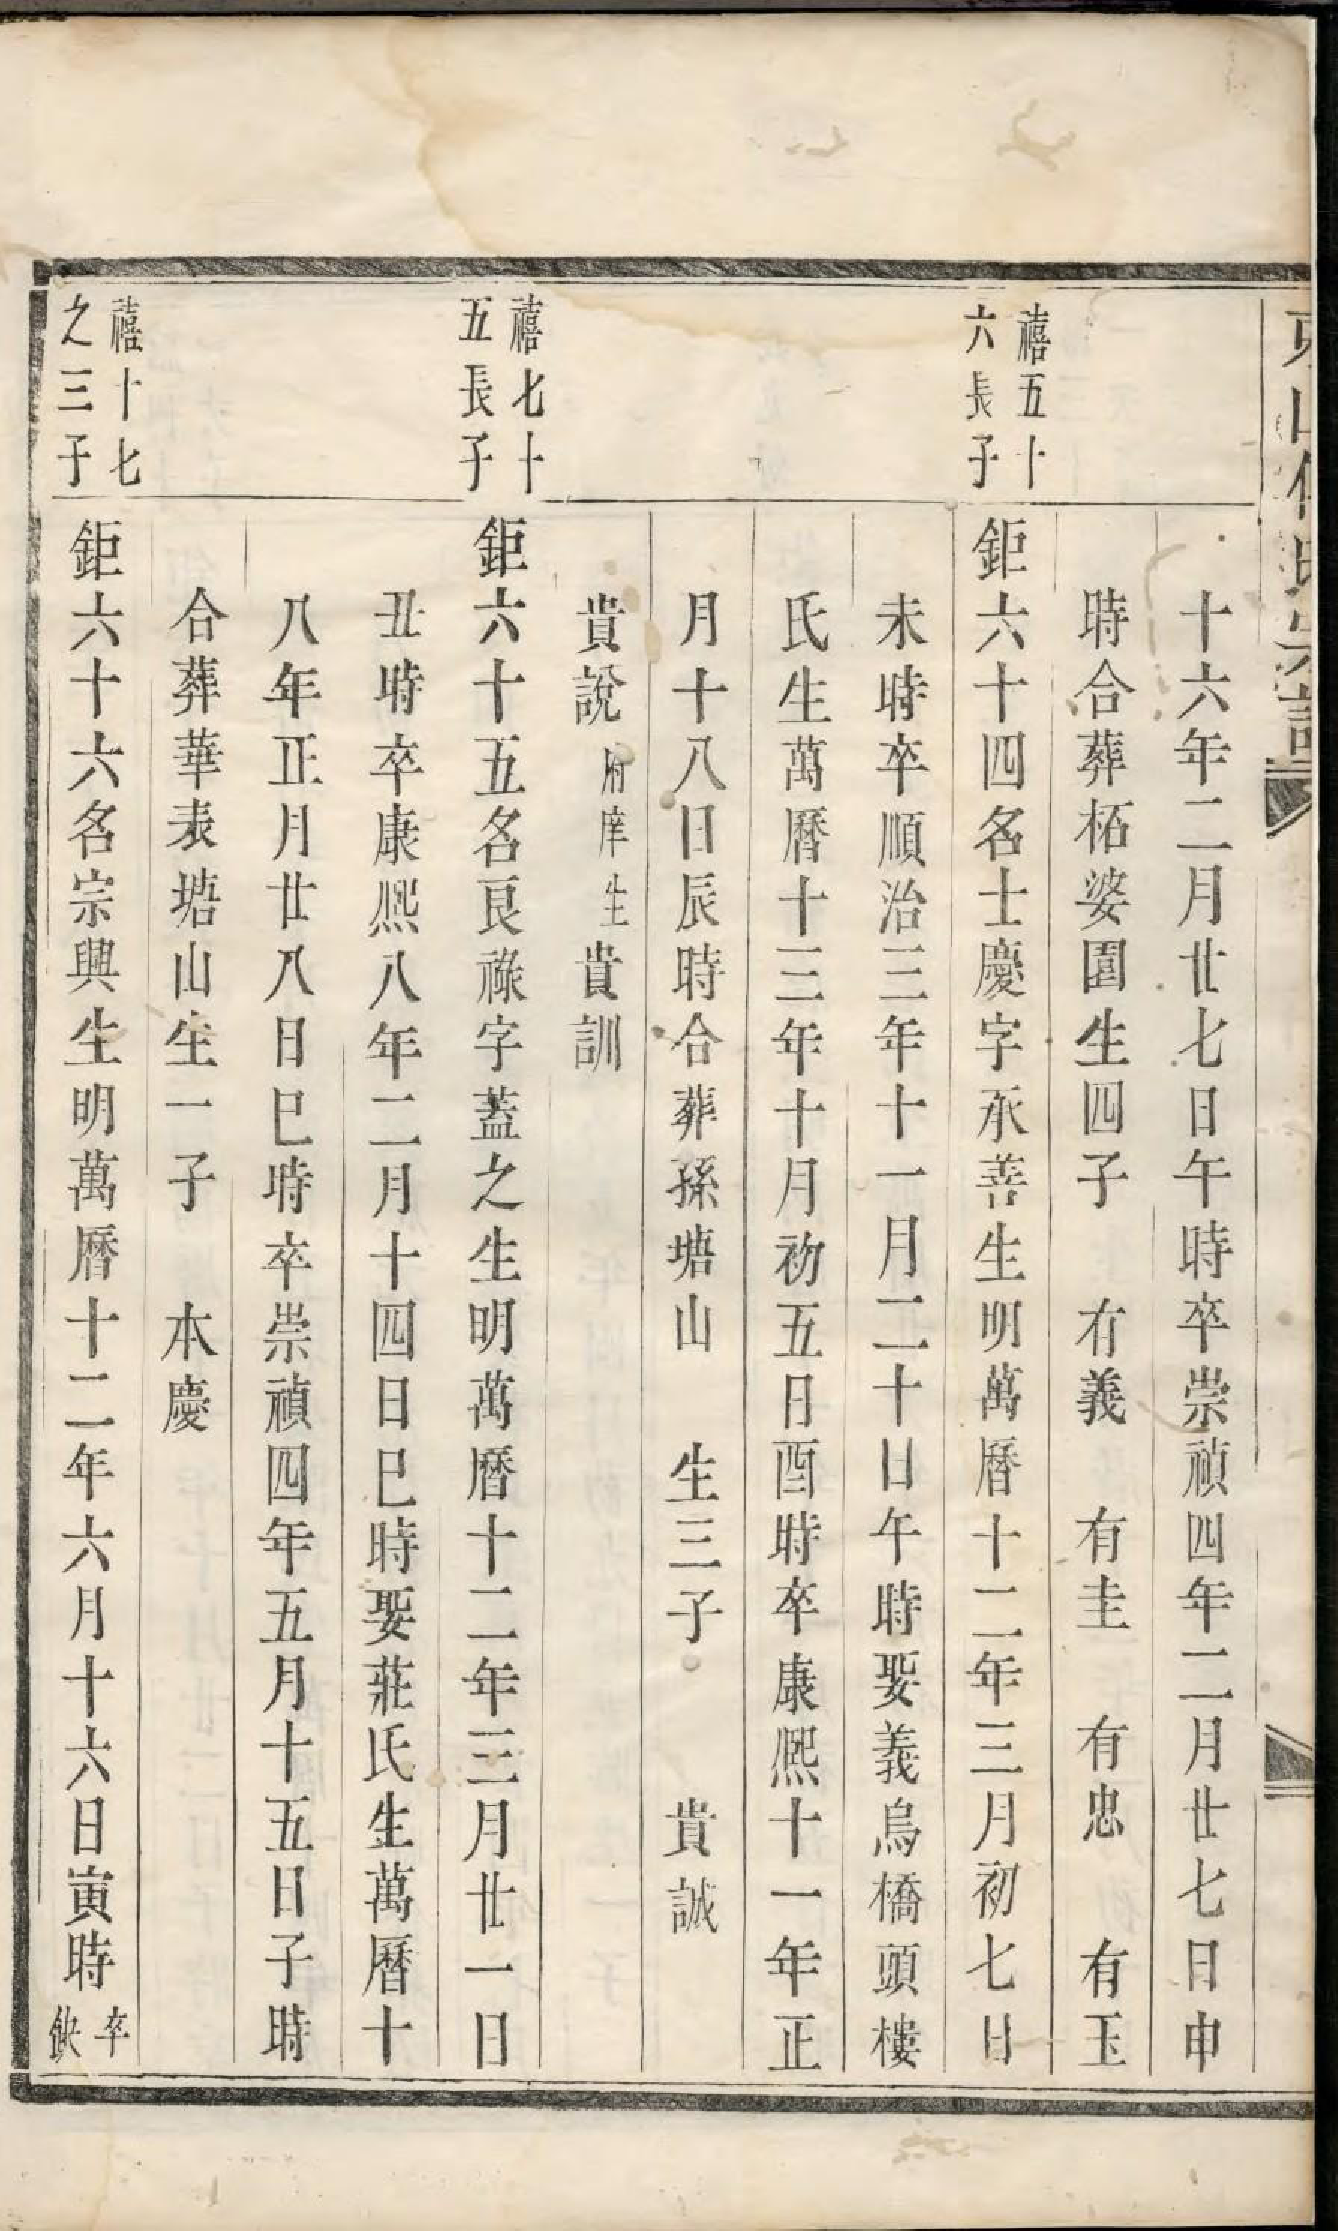 十六年二月廿七日午時卒崇禎四年二月廿七日申
時合葬栢婆園生四子　有義　有圭　有忠　有玉
禧五十
六長子
鉅六十四名士慶字承善生明萬曆十二年三月初七日
未時卒順治三年十一月二十日午時娶義烏橋頭樓
氏生萬曆十三年十月初五日酉時卒康熙十一年正
月十八日辰時合葬孫塘山　生三子　貴誠
貴說府庠生貴訓
禧七十
五長子
鉅六十五名良祿字蓋之生明萬曆十二年三月廿一日
丑時卒康熙八年二月十四日巳時娶莊氏生萬曆十
八年正月廿八日巳時卒崇禎四年五月十五日子時
合葬華表塘山生一子　本慶
禧十七
之三子
鉅六十六名宗興生明萬曆十二年六月十六日寅時卒
缺